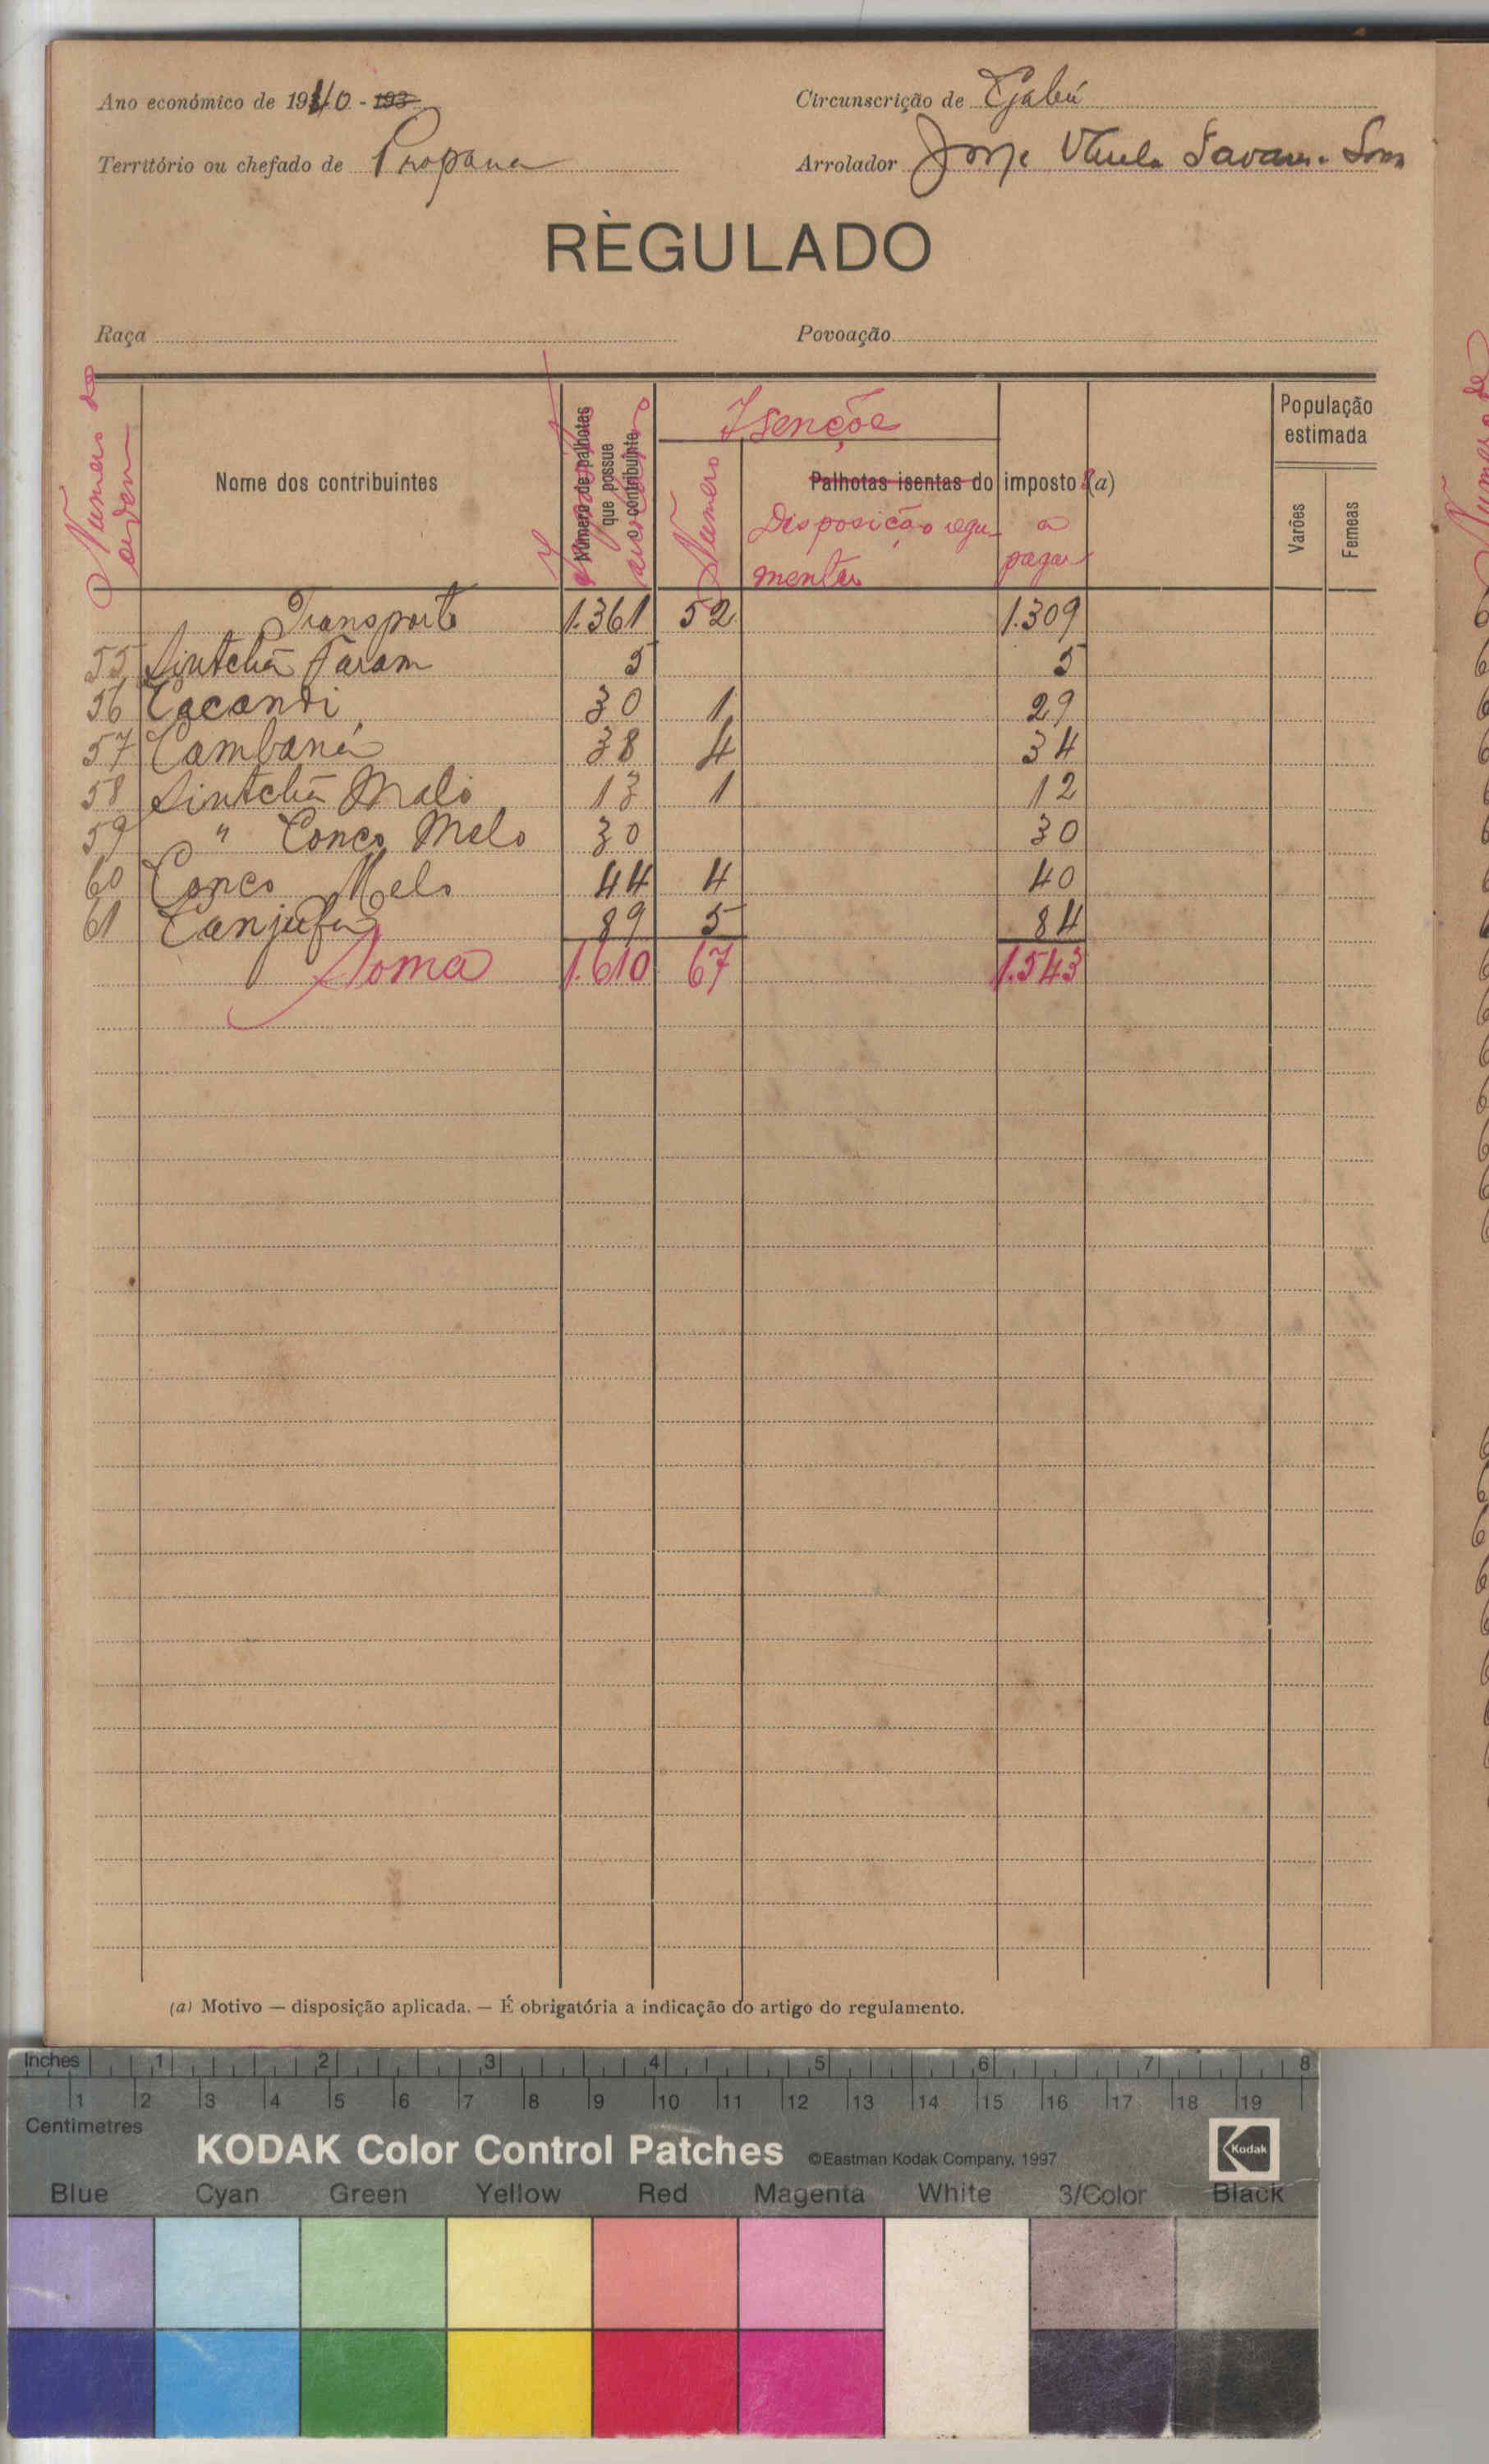 Ano económico de 1940 - 193
Circunscrição de Gabú
Território ou chefado de Propana
Arrolador Jorje
RÈGULADO
Raça
Povoação
Numero de ordem
Nome dos contribuintes
Número de palhotas que possue o contribuinte
Isenções
Numero
Palhotas isentas do imposto (a)
Disposição regu-
mentar
a
pagar
População
estimada
Varões
Femeas
Transporte 1.361 52 1.309
55 Sintchã Faram 5 5
56 Cacandi 30 1 29
57 Cambaná 38 4 34
58 Sintchã Malo 13 1 12
59 " Conco Melo 30 30
60 Conco Melo 44 4 40
61 Canjufa 89 5 84
Soma 1.610 67 1.543
(a) Motivo — disposição aplicada. — É obrigatória a indicação do artigo do regulamento.
Inches 1 2 3 4 5 6 7 8
1 2 3 4 5 6 7 8 9 10 11 12 13 14 15 16 17 18 19
Centimetres
KODAK Color Control Patches ©Eastman Kodak Company, 1997 Kodak
Blue Cyan Green Yellow Red Magenta White 3/Color Black